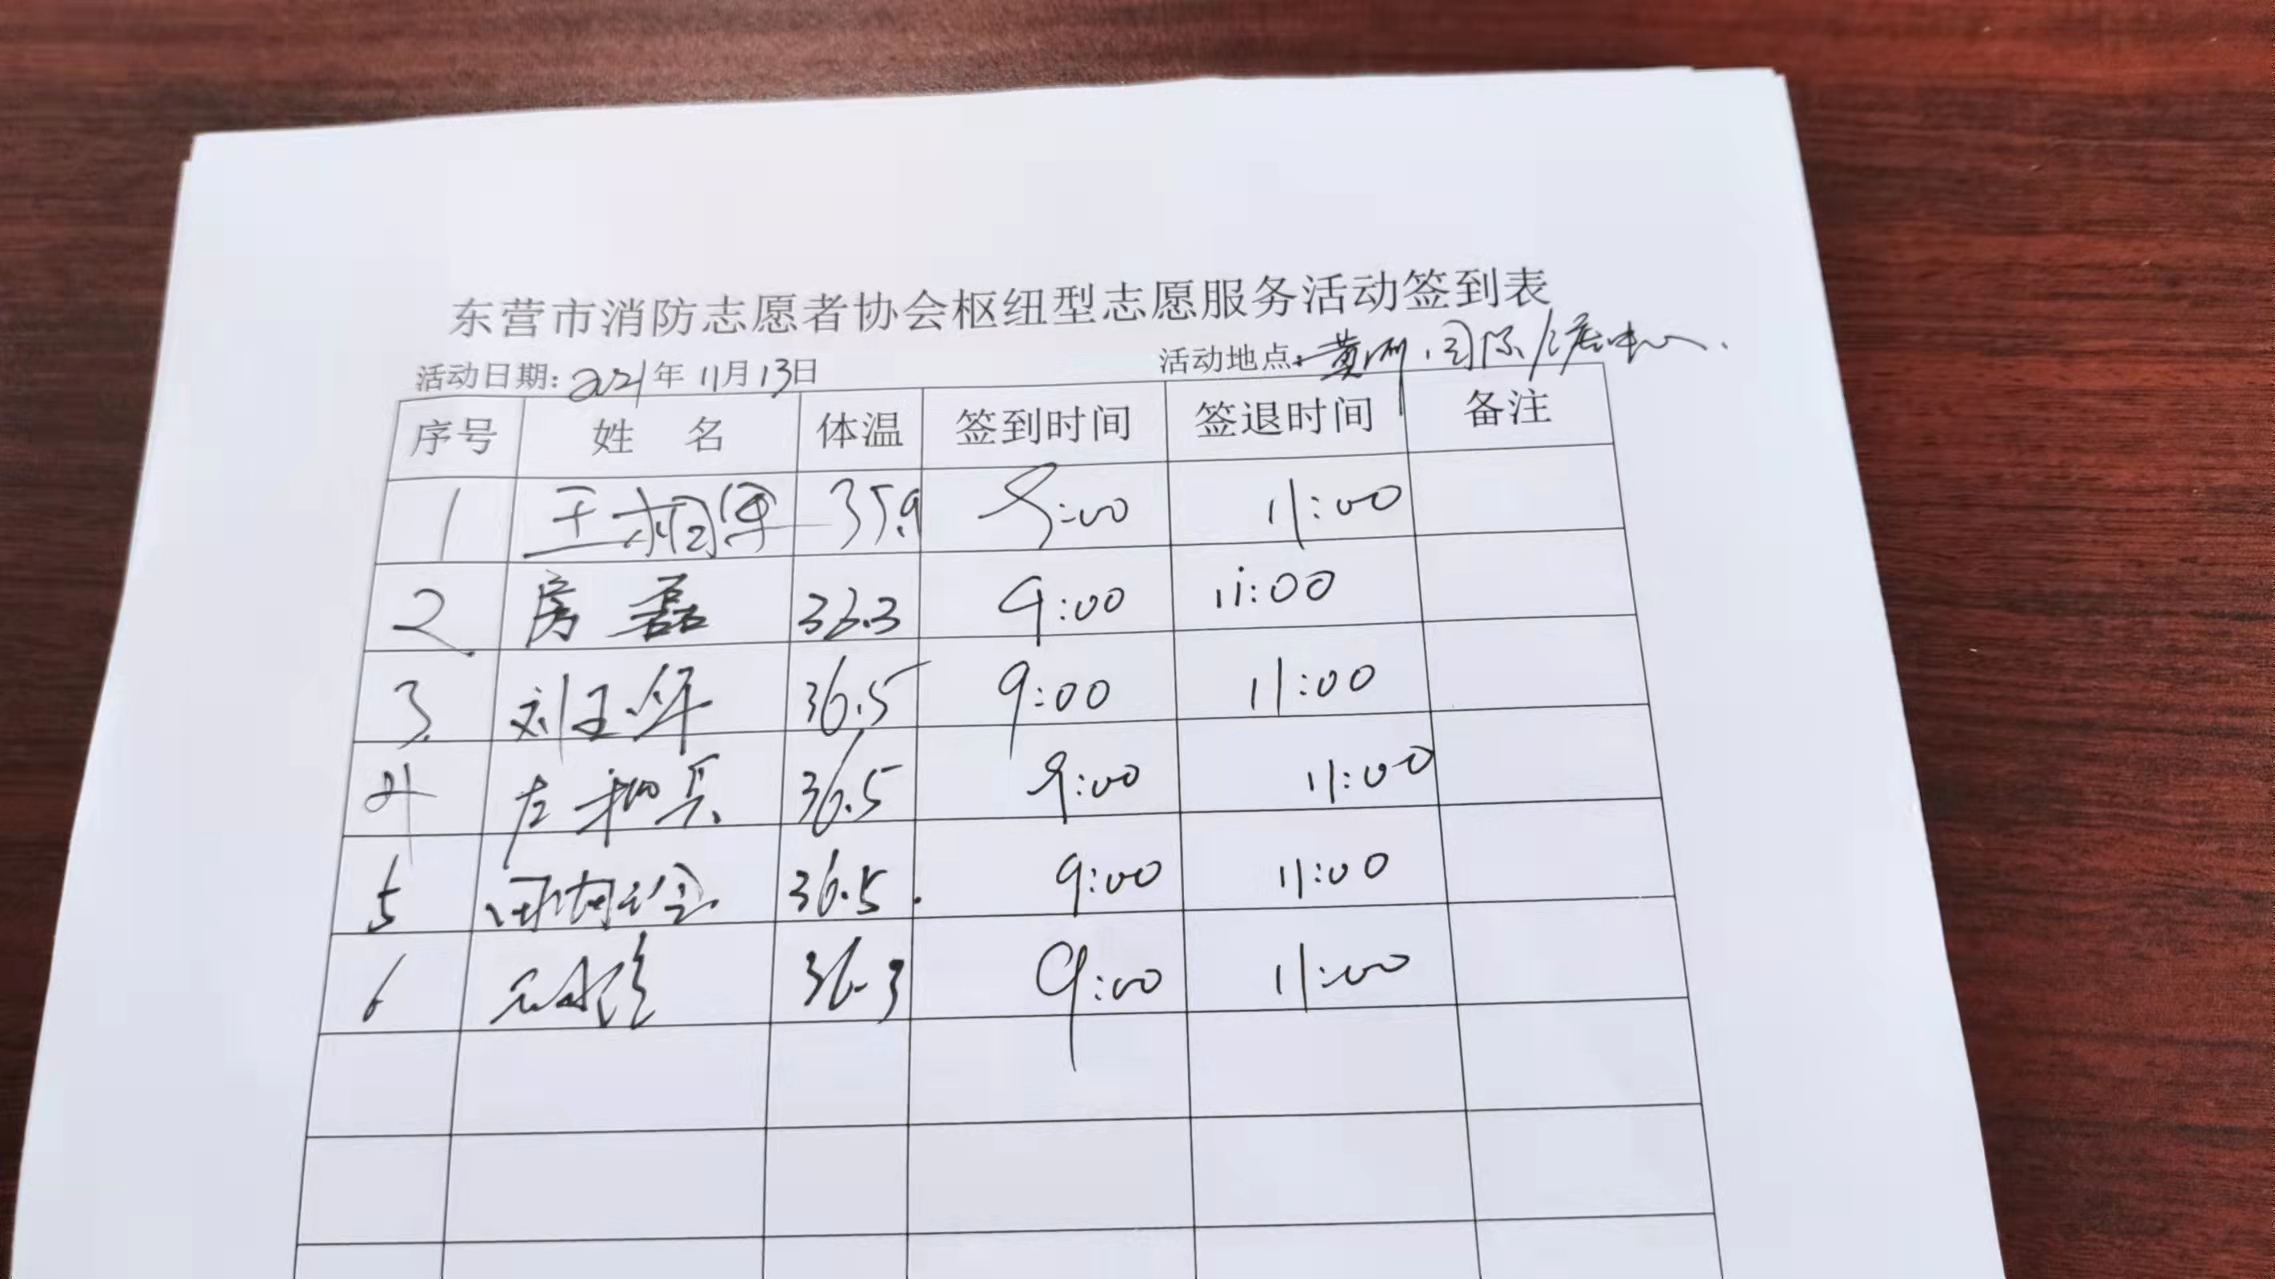 东营市消防志愿者协会枢纽型志愿服务活动签到表
活动日期: 2021年 11月 13日 活动地点: 黄河国际会展中心
序号 姓 名 体温 签到时间 签退时间 备注
1 王相军 35.9 9:00 11:00
2 房磊 36.3 9:00 11:00
3 刘玉华 36.5 9:00 11:00
4 左和兵 36.5 9:00 11:00
5 36.5 9:00 11:00
6 36.3 9:00 11:00